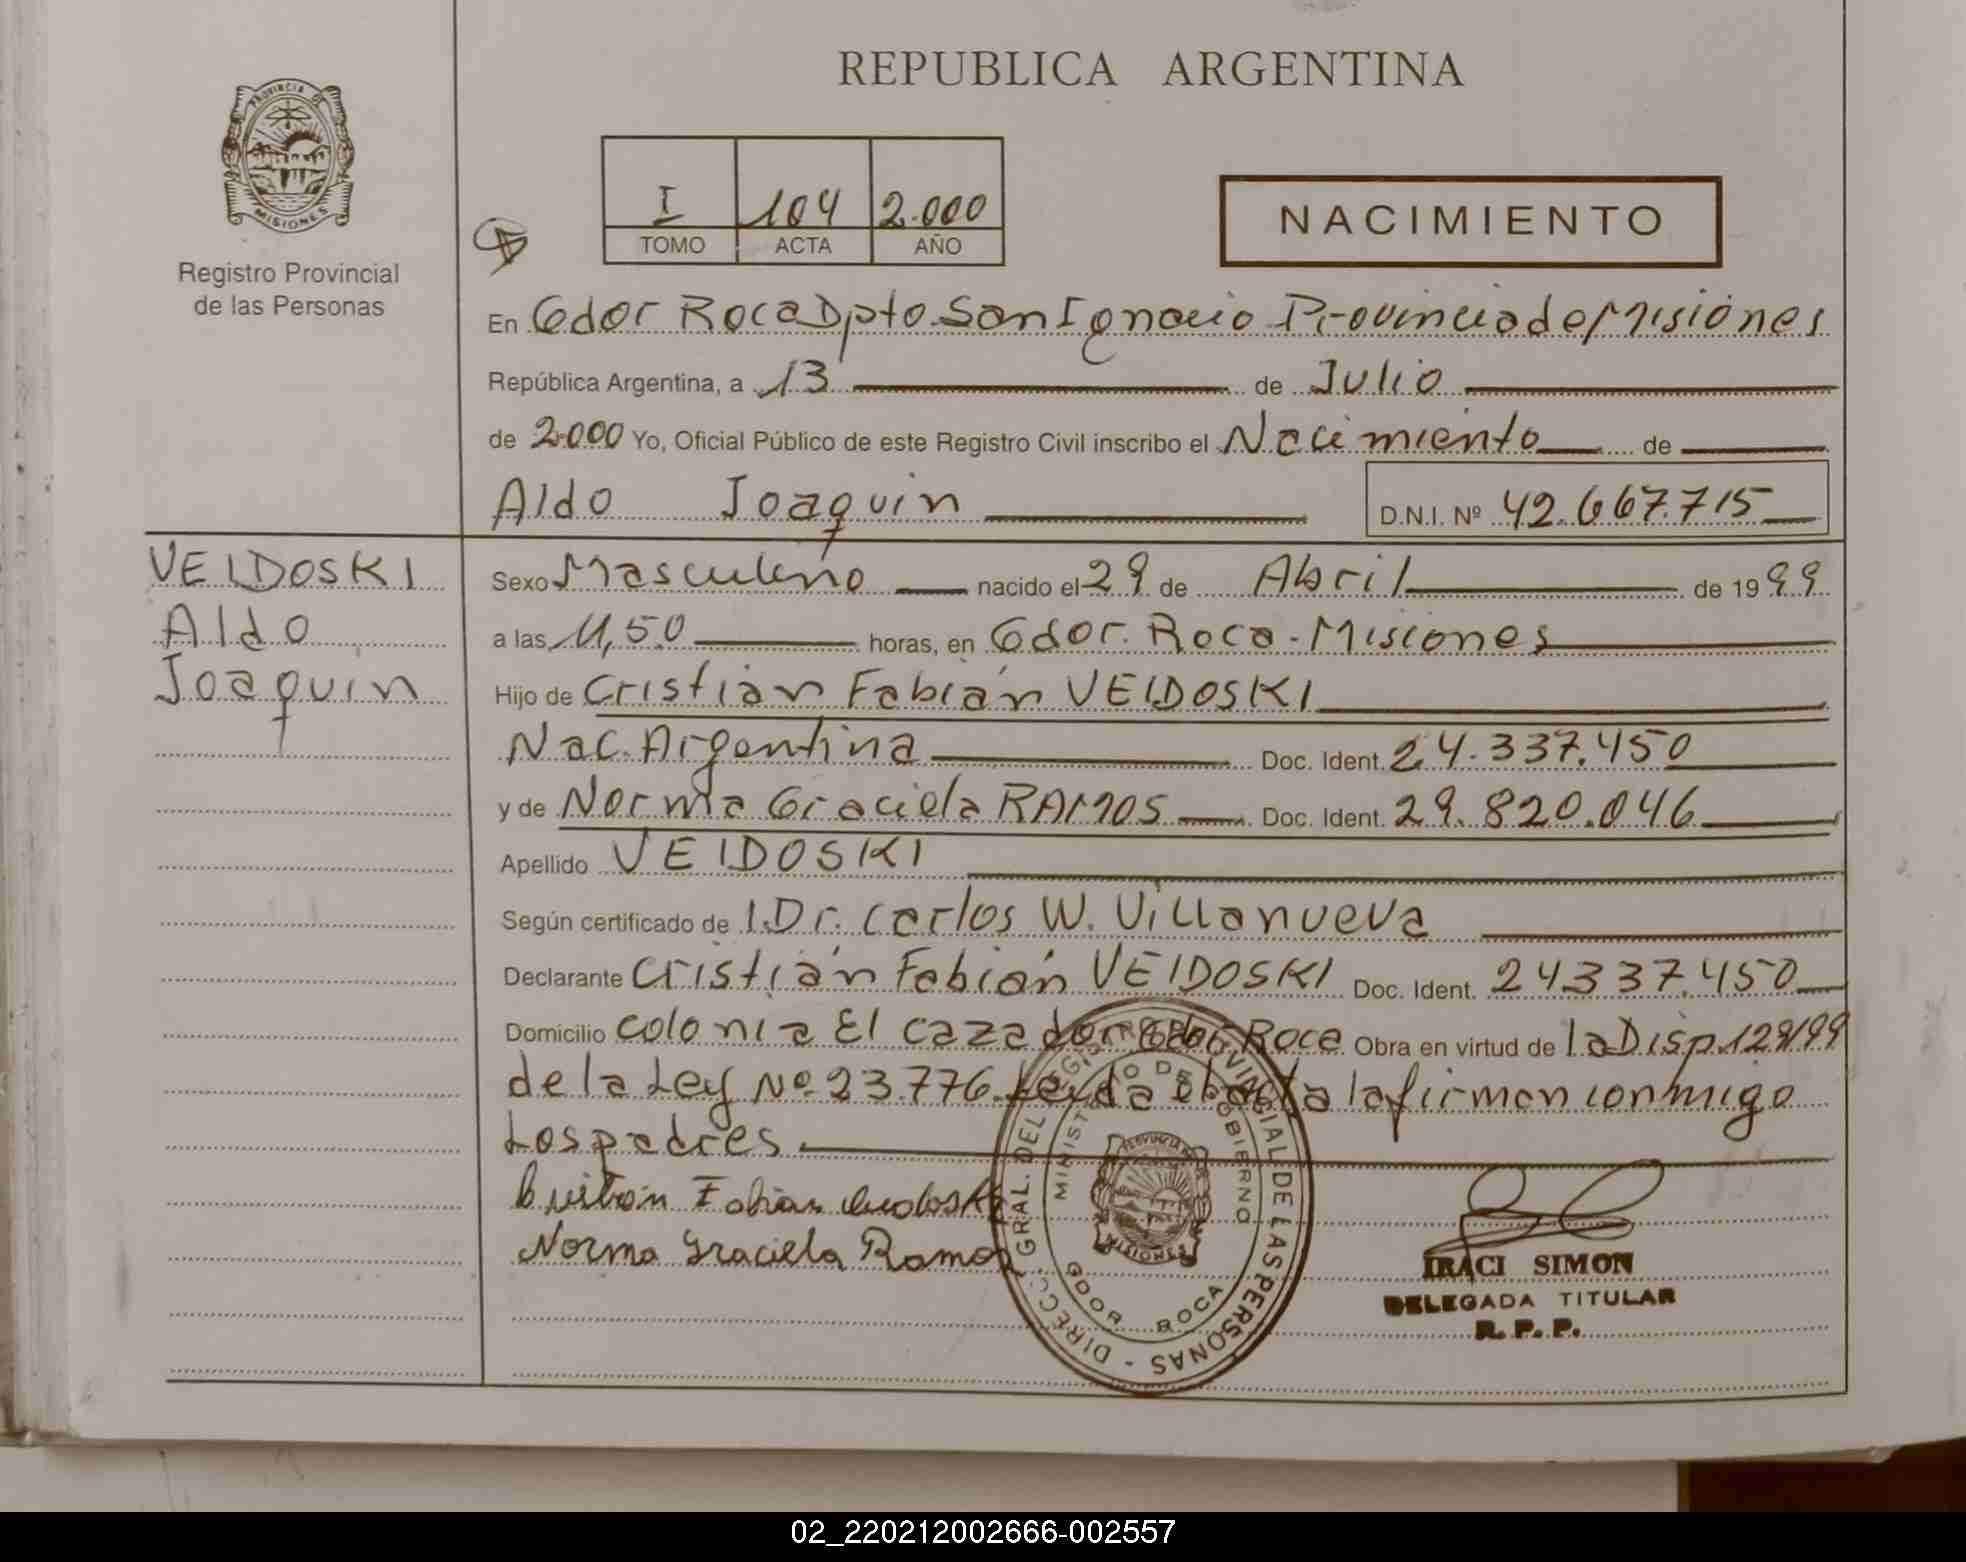 REPUBLICA ARGENTINA
PROVINCIA DE
MISIONES
Registro Provincial
de las Personas
I 104 2.000
TOMO ACTA AÑO
NACIMIENTO
En Gdor Roca Dpto San Ignacio Provincia de Misiones
República Argentina, a 13 de Julio
de 2.000 Yo, Oficial Público de este Registro Civil inscribo el Nacimiento de
Aldo Joaquin D.N.I. Nº 42.667.715
VEIDOSKI
Aldo
Joaquin
Sexo Masculino nacido el 29 de Abril de 1999
a las 11,50 horas, en Gdor. Roca - Misiones
Hijo de Cristián Fabián VEIDOSKI
Nac. Argentina Doc. Ident. 24.337.450
y de Norma Graciela RAMOS Doc. Ident. 29.820.046
Apellido VEIDOSKI
Según certificado de l Dr. Carlos W. Villanueva
Declarante Cristián Fabián VEIDOSKI Doc. Ident. 24.337.450
Domicilio Colonia El Cazador Gdor Roca Obra en virtud de la Disp 129/99
de la Ley Nº 23.776. Leída el acta la firman conmigo
Los padres
Cristian Fabian Veidoski
Norma Graciela Ramos
DIREC. GRAL. DEL REGISTRO PROVINCIAL DE LAS PERSONAS -
MINISTERIO DE GOBIERNO
PROVINCIA DE
MISIONES
GDOR ROCA
IRACI SIMON
DELEGADA TITULAR
R. P. P.
02_220212002666-002557